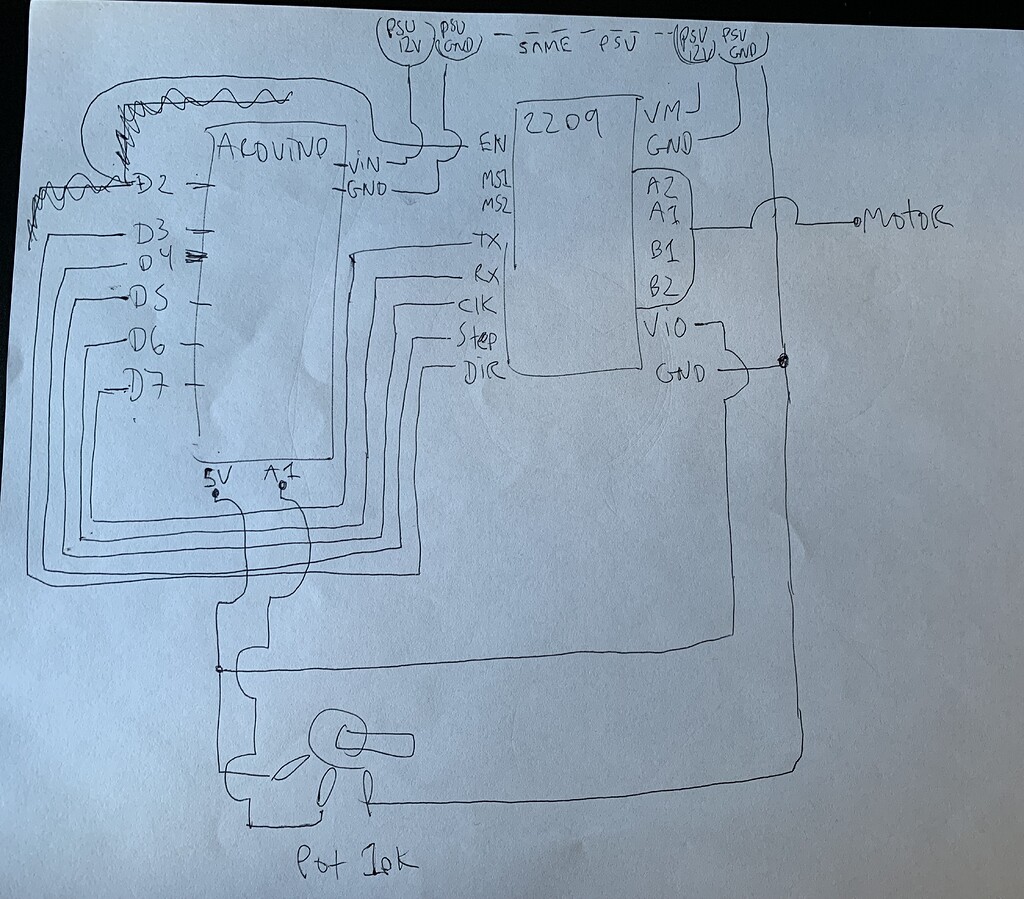 PSU 12V PSU GND - - - SAME PSU - - - PSU 12V PSU GND
ARDUINO
D2
D3
D4
D5
D6
D7
VIN
GND
5V A1
2209
EN
MS1
MS2
TX
RX
CLK
Step
DIR
VM
GND
A2
A1
B1
B2
VIO
GND
MOTOR
Pot 10k